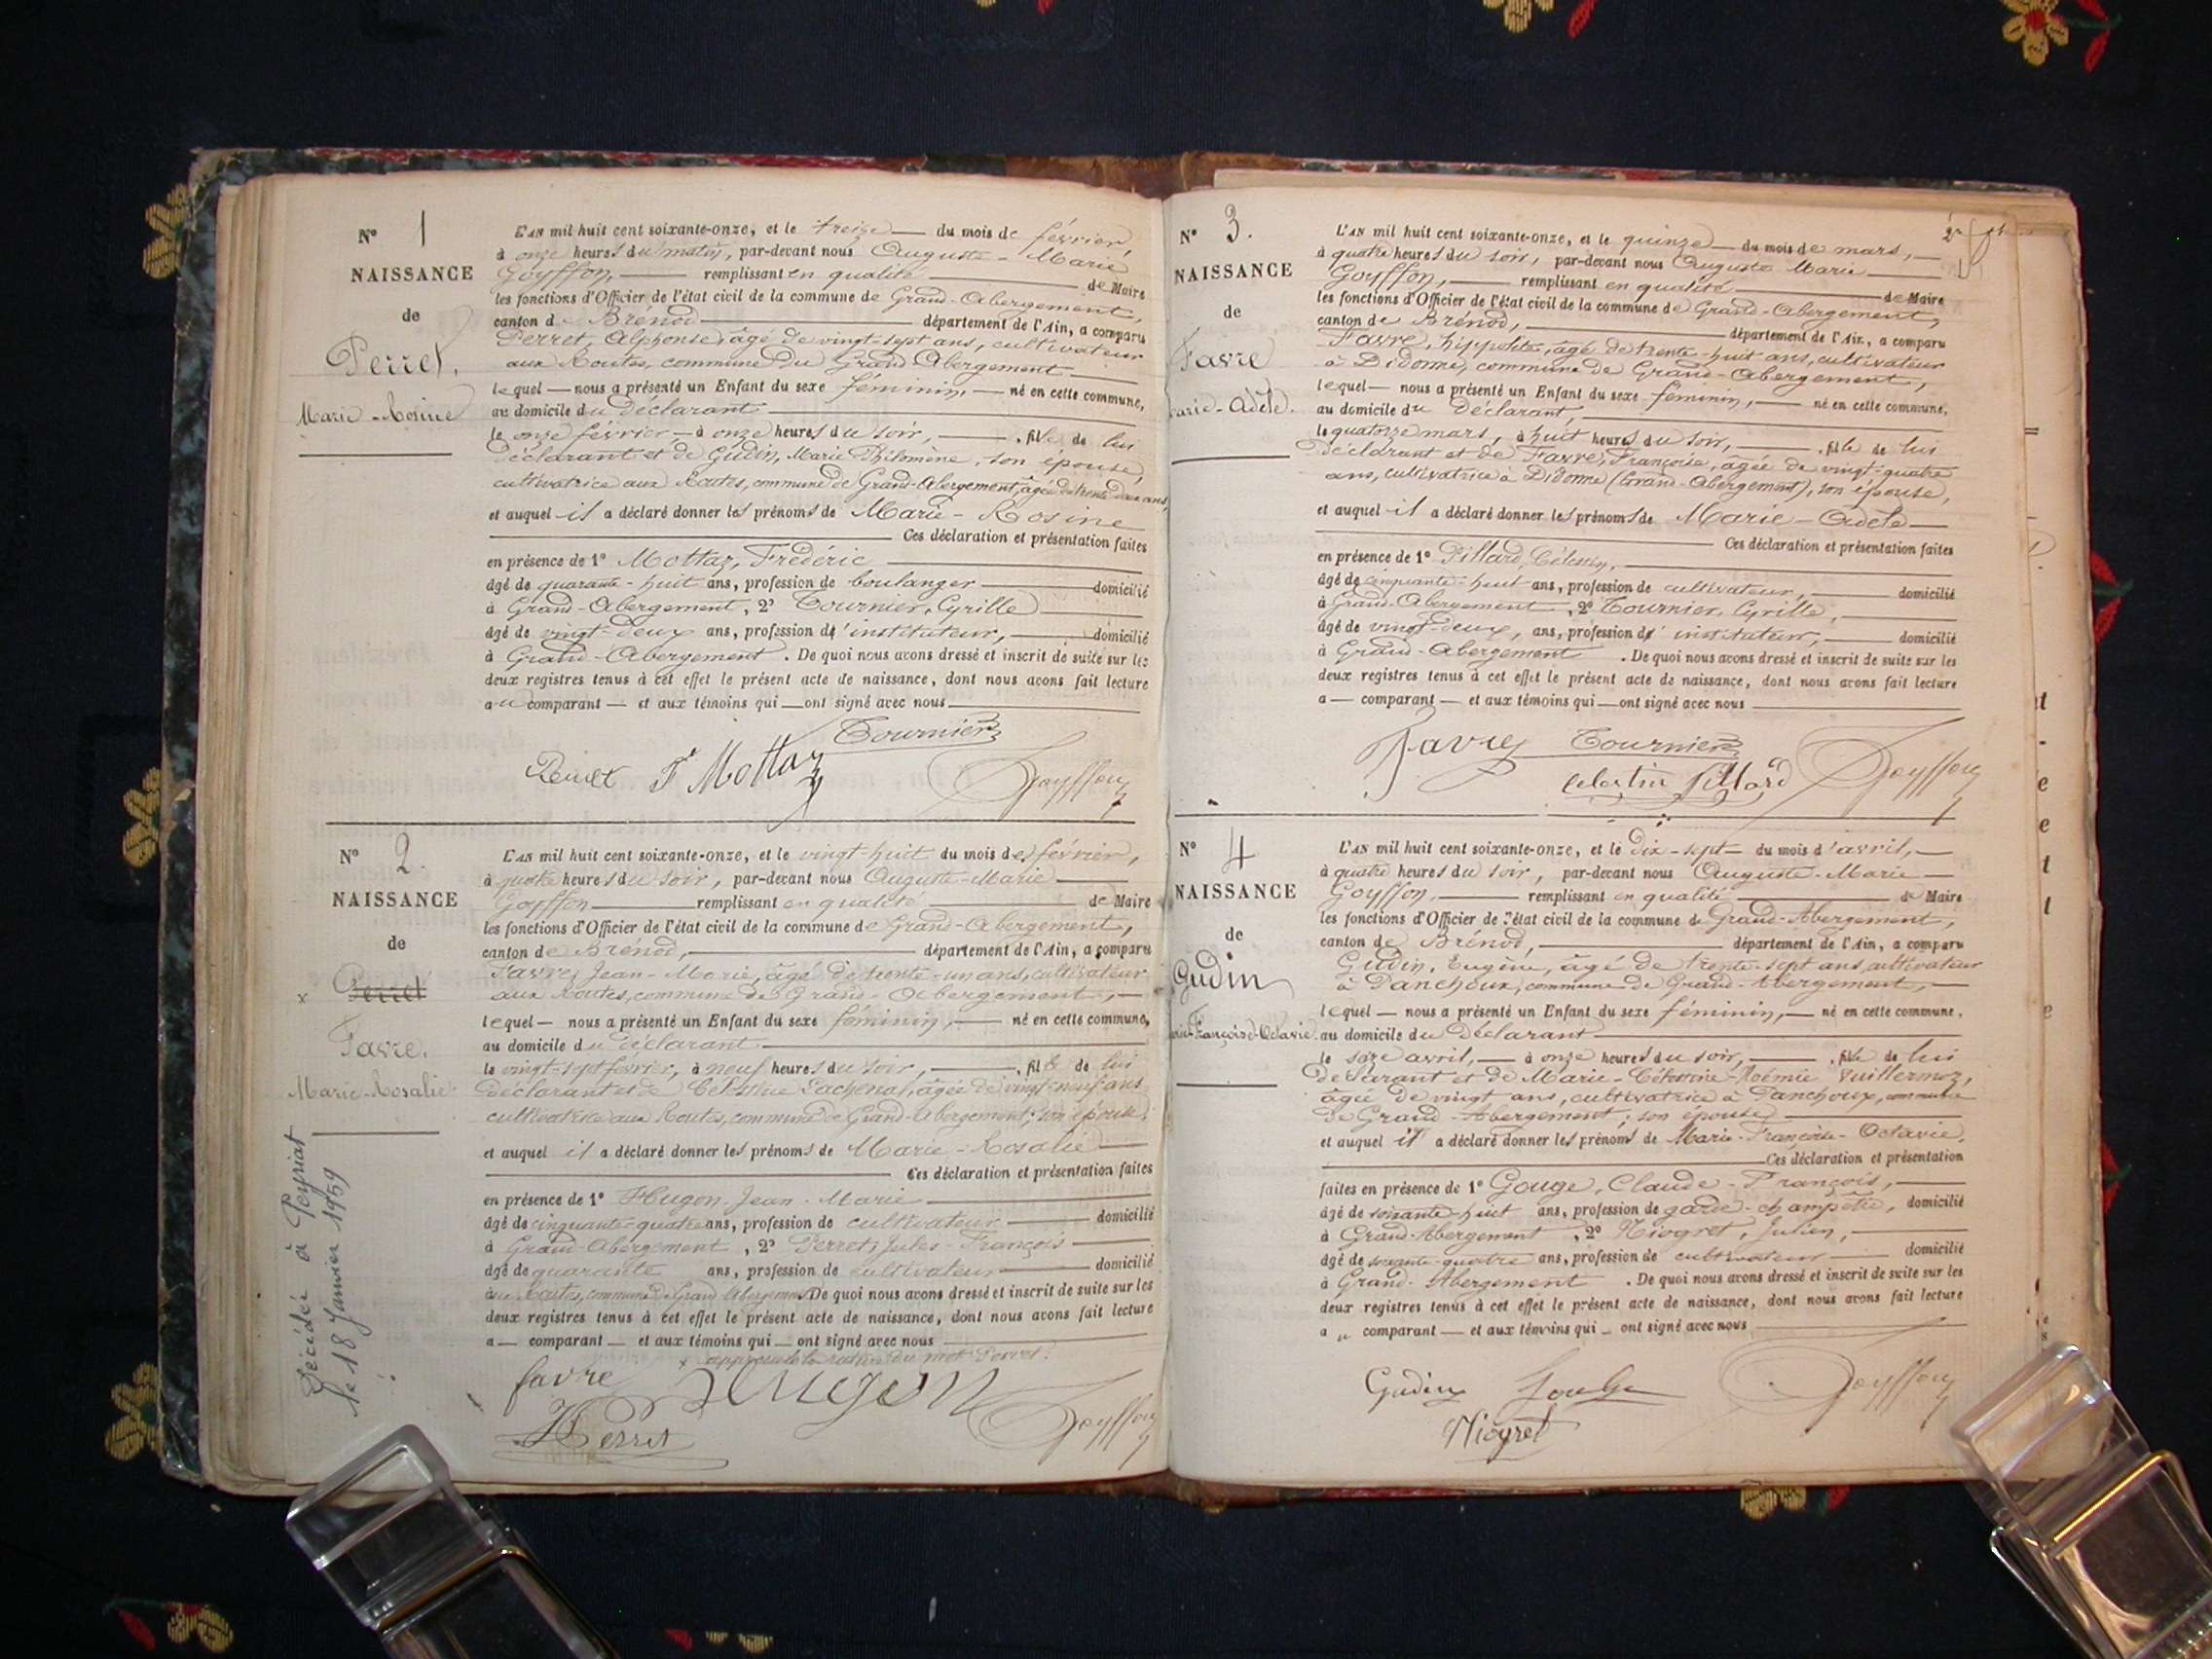 N° 1
NAISSANCE
de
Perret.
Marie-Rosine
L'AN mil huit cent soixante-onze, et le treize du mois de février
à onze heures du matin, par-devant nous Auguste-Marie
Goyffon, remplissant en qualité de Maire
les fonctions d'Officier de l'état civil de la commune de Grand-Abergement,
canton de Brénod département de l'Ain, a comparu
Perret, Alphonse, âgé de vingt-sept ans, cultivateur
aux Routes, commune du Grand Abergement
lequel nous a présenté un Enfant du sexe féminin, né en cette commune,
au domicile du déclarant
le onze février à onze heures du soir, fille de lui
déclarant et de Gudin, Marie Philomène, son épouse,
cultivatrice aux Routes, commune de Grand-Abergement, âgée de trente deux ans,
et auquel il a déclaré donner les prénoms de Marie-Rosine
Ces déclaration et présentation faites
en présence de 1° Mottaz, Frédéric
âgé de quarante-huit ans, profession de boulanger domicilié
à Grand-Abergement, 2° Tournier, Cyrille
âgé de vingt-deux ans, profession d'instituteur, domicilié
à Grand-Abergement. De quoi nous avons dressé et inscrit de suite sur les
deux registres tenus à cet effet le présent acte de naissance, dont nous avons fait lecture
au comparant et aux témoins qui ont signé avec nous
Tournier
Perret F Mottaz Goyffon
N° 2.
NAISSANCE
de
x Perret
Favre.
Marie-Rosalie
Décédée à Peyriat
le 18 Janvier 1959
L'AN mil huit cent soixante-onze, et le vingt-huit du mois de février,
à quatre heures du soir, par-devant nous Auguste-Marie
Goyffon remplissant en qualité de Maire
les fonctions d'Officier de l'état civil de la commune de Grand-Abergement,
canton de Brénod, département de l'Ain, a comparu
Favre, Jean-Marie, âgé de trente-un ans, cultivateur
aux Routes, commune de Grand-Abergement,
lequel nous a présenté un Enfant du sexe féminin, né en cette commune,
au domicile du déclarant
le vingt-sept février, à neuf heures du soir, fille de lui
déclarant et de Célestine Lachenal, âgée de vingt-neuf ans,
cultivatrice aux Routes, commune de Grand-Abergement, son épouse.
et auquel il a déclaré donner les prénoms de Marie-Rosalie
Ces déclaration et présentation faites
en présence de 1° Hugon Jean-Marie
âgé de cinquante-quatre ans, profession de cultivateur domicilié
à Grand-Abergement, 2° Perret, Jules-François
âgé de quarante ans, profession de cultivateur domicilié
aux Routes, commune de Grand Abergement De quoi nous avons dressé et inscrit de suite sur les
deux registres tenus à cet effet le présent acte de naissance, dont nous avons fait lecture
a comparant et aux témoins qui ont signé avec nous
x approuvé la rature du mot Perret.
favre Hugon
Perret Goyffon
N° 3.
NAISSANCE
de
Favre
Marie-Adèle.
L'AN mil huit cent soixante-onze, et le quinze du mois de mars,
à quatre heures du soir, par-devant nous Auguste Marie
Goyffon, remplissant en qualité de Maire
les fonctions d'Officier de l'état civil de la commune de Grand-Abergement,
canton de Brénod, département de l'Ain, a comparu
Favre, hippolite, âgé de trente-huit ans, cultivateur
à Didonne, commune de Grand-Abergement,
lequel nous a présenté un Enfant du sexe féminin, né en cette commune,
au domicile du déclarant,
le quatorze mars, à huit heures du soir, fille de lui
déclarant et de Favre, Françoise, âgée de vingt-quatre
ans, cultivatrice à Didonne (Grand-Abergement), son épouse,
et auquel il a déclaré donner les prénoms de Marie-Adèle
Ces déclaration et présentation faites
en présence de 1° Pillard, Célestin,
âgé de cinquante-huit ans, profession de cultivateur, domicilié
à Grand-Abergement, 2° Tournier, Cyrille,
âgé de vingt-deux, ans, profession d'instituteur, domicilié
à Grand-Abergement. De quoi nous avons dressé et inscrit de suite sur les
deux registres tenus à cet effet le présent acte de naissance, dont nous avons fait lecture
a comparant et aux témoins qui ont signé avec nous
Favre Tournier
Celestin Pillard Goyffon
N° 4
NAISSANCE
de
Gudin
Marie-Françoise-Octavie
L'AN mil huit cent soixante-onze, et le dix-sept du mois d'avril,
à quatre heures du soir, par-devant nous Auguste-Marie
Goyffon, remplissant en qualité de Maire
les fonctions d'Officier de l'état civil de la commune de Grand-Abergement,
canton de Brénod, département de l'Ain, a comparu
Gudin, Eugène, âgé de trente-sept ans, cultivateur
à Panchoux, commune de Grand-Abergement,
lequel nous a présenté un Enfant du sexe féminin, né en cette commune,
au domicile du déclarant
le seize avril, à onze heures du soir, fille de lui
déclarant et de Marie-Célestine-Noémie Vuillermoz,
âgée de vingt ans, cultivatrice à Panchoux, commune
de Grand-Abergement; son épouse
et auquel il a déclaré donner les prénoms de Marie-Françoise-Octavie.
Ces déclaration et présentation
faites en présence de 1° Gouge, Claude-François,
âgé de soixante-huit ans, profession de garde-champêtre, domicilié
à Grand-Abergement, 2° Niogret, Julien,
âgé de soixante-quatre ans, profession de cultivateur domicilié
à Grand-Abergement. De quoi nous avons dressé et inscrit de suite sur les
deux registres tenus à cet effet le présent acte de naissance, dont nous avons fait lecture
au comparant et aux témoins qui ont signé avec nous
Gudin Gouge Goyffon
Niogret